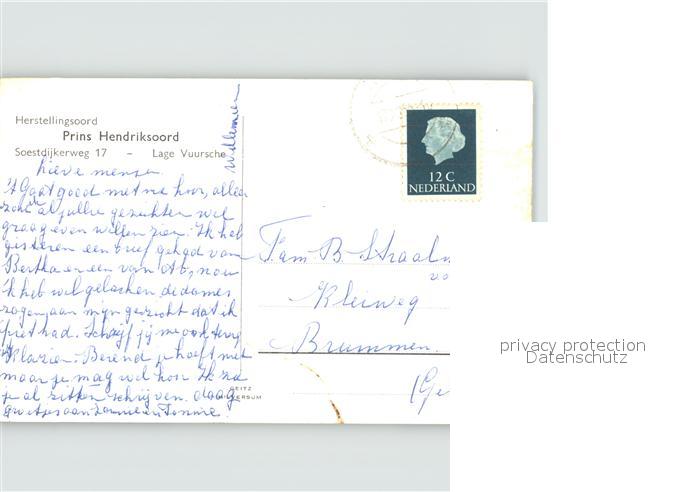 Herstellingsoord
Prins Hendriksoord
Soestdijkerweg 17 – Lage Vuursche
Lieve mensen
't Gaat goed met me hoor, alleen
zou ik al jullie gezichten wel
graag even willen zien. Ik heb
gisteren een brief gehad van
Bertha en een van Ab, nou
'k heb wel gelachen, de dames
zagen aan mijn gezicht dat ik
pret had. Schrijf jij me ook terug
Berend, je hoeft niet
maar je mag wel hoor. Ik zie
je al zitten schrijven. daag
groetjes aan en Tonnie.
Willemien
12 C
NEDERLAND
Fam B. Straal
Kleiweg
Brummen.
(Ge
privacy protection
Datenschutz